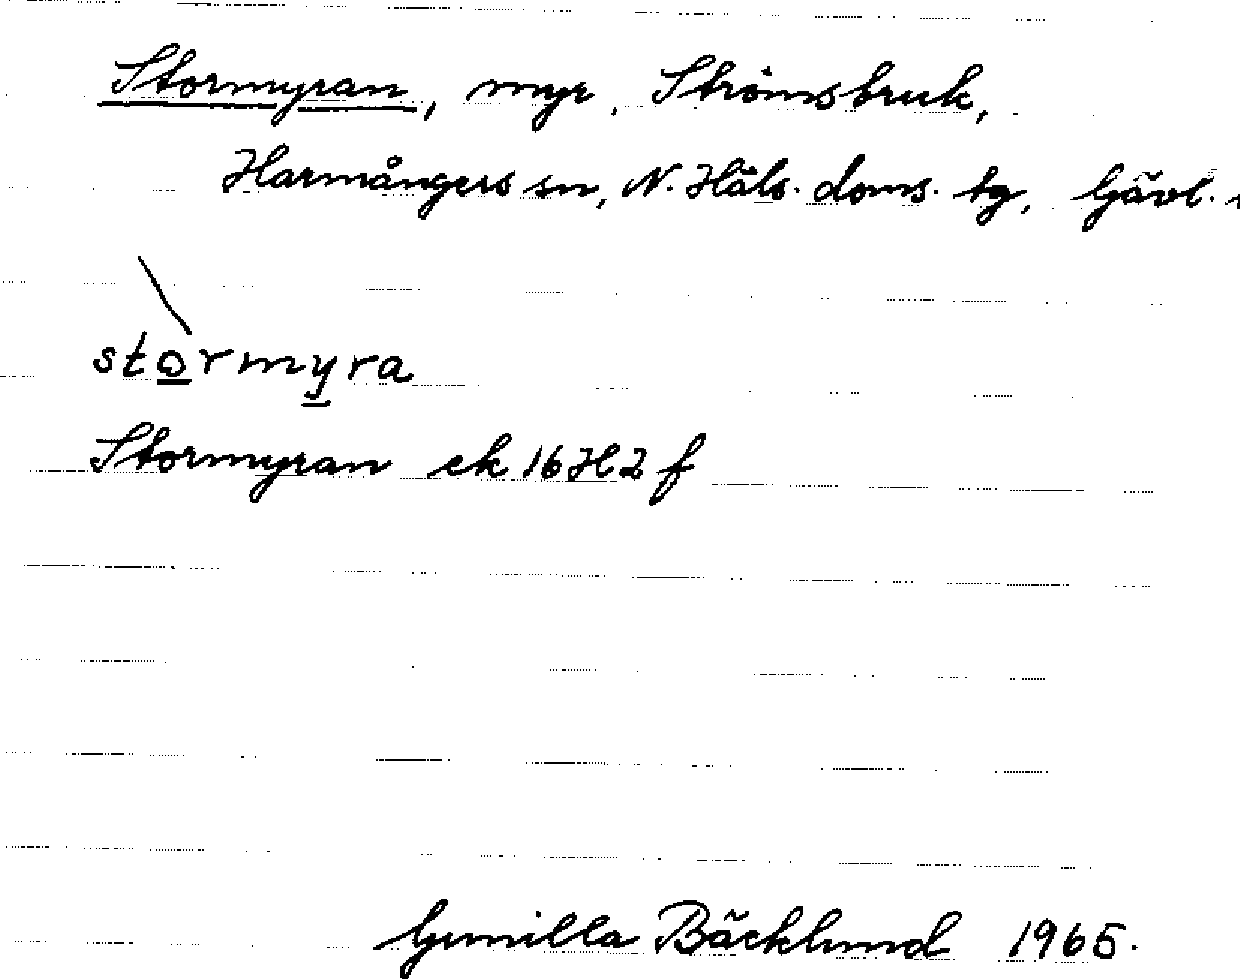 Stormyran, myr, Strömsbruk,
Harmångers sn, N. Häls. doms. tg, Gävl.
stormyra
Stormyran ek 16H2f
Gunilla Bäcklund 1965.